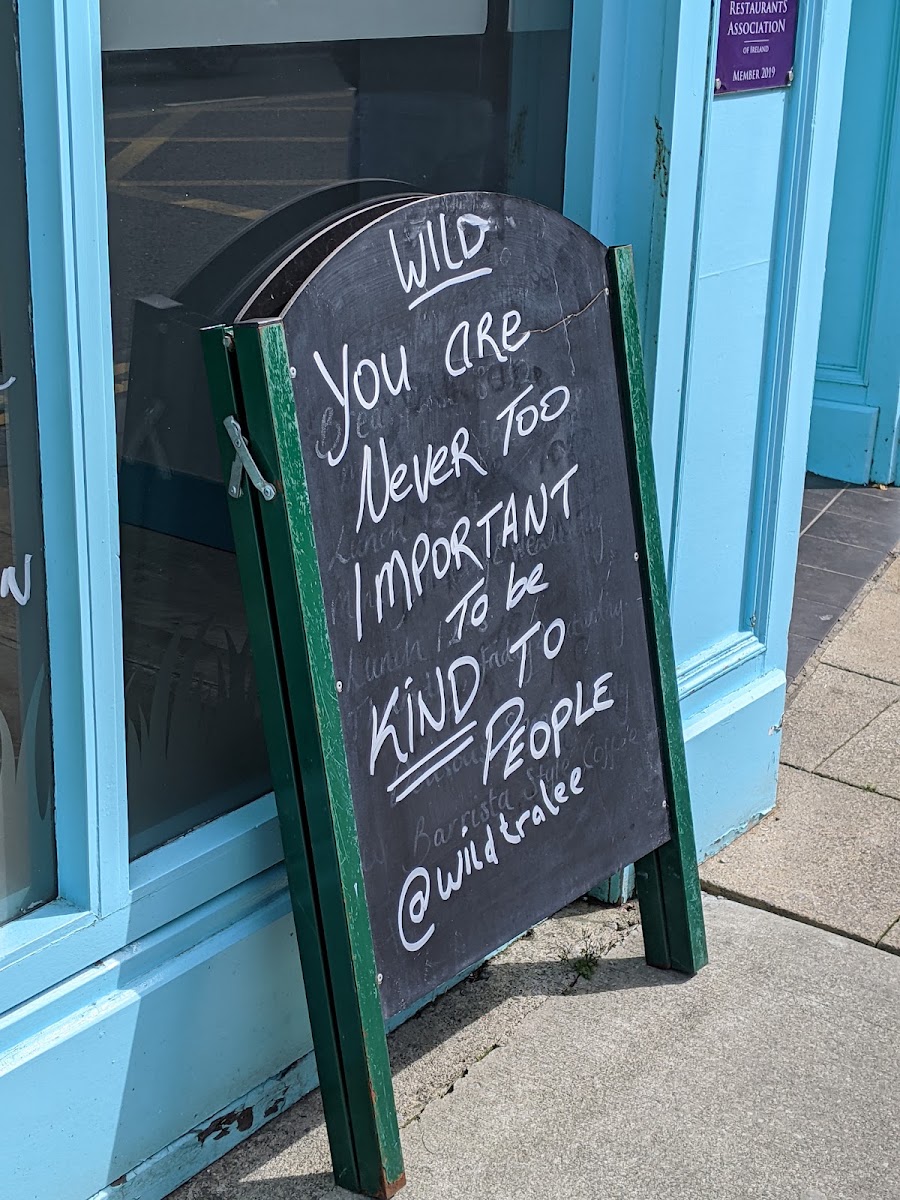 RESTAURANTS
ASSOCIATION
OF IRELAND
MEMBER 2019
WILD
You are
Never Too
IMPORTANT
To be
KiND TO
PEOPLE
@wildtralee
Lunch 12
Lunch
Barrista Style Coffee
N